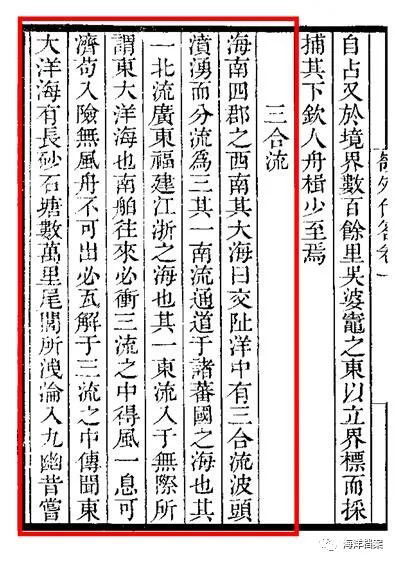 外代答卷一
自占又於境界數百餘里吳婆竈之東以立界標而採
捕其下欽人舟楫少至焉
三合流
海南四郡之西南其大海曰交阯洋中有三合流波頭
濆湧而分流爲三其一南流通道于諸蕃國之海也其
一北流廣東福建江浙之海也其一東流入于無際所
謂東大洋海也南舶往來必衝三流之中得風一息可
濟苟入險無風舟不可出必瓦解于三流之中傳聞東
大洋海有長砂石塘數萬里尾閭所洩淪入九幽昔嘗
海洋档案